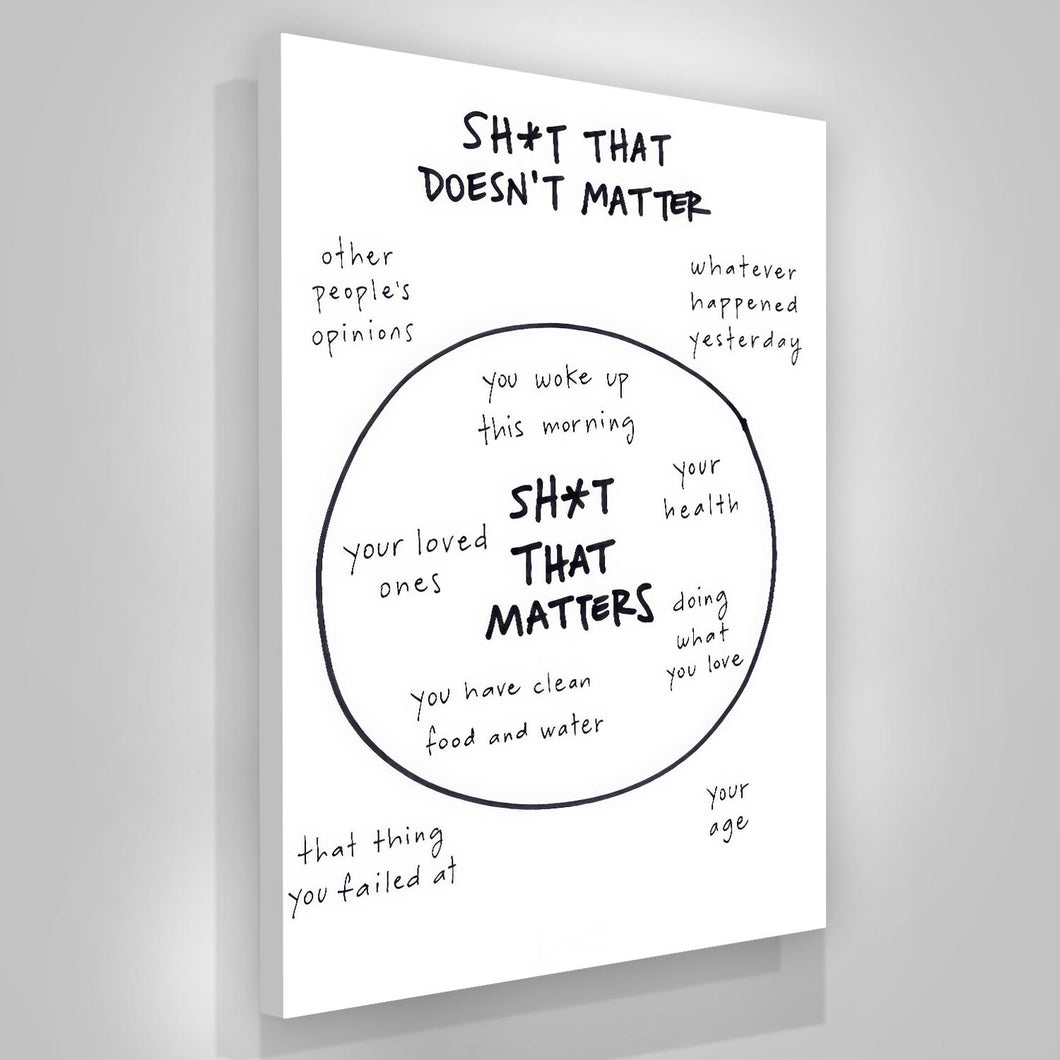 SH*T THAT
DOESN'T MATTER
other
people's
opinions
whatever
happened
yesterday
you woke up
this morning
your
health
SH*T
THAT
MATTERS
your loved
ones
doing
what
you love
you have clean
food and water
your
age
that thing
you failed at